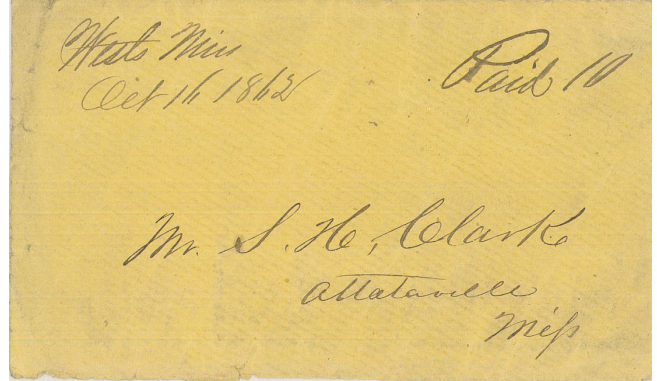 Wests Miss
Oct 16 1862
Paid 10
Mr. S. H, Clark
Attalaville
Miss